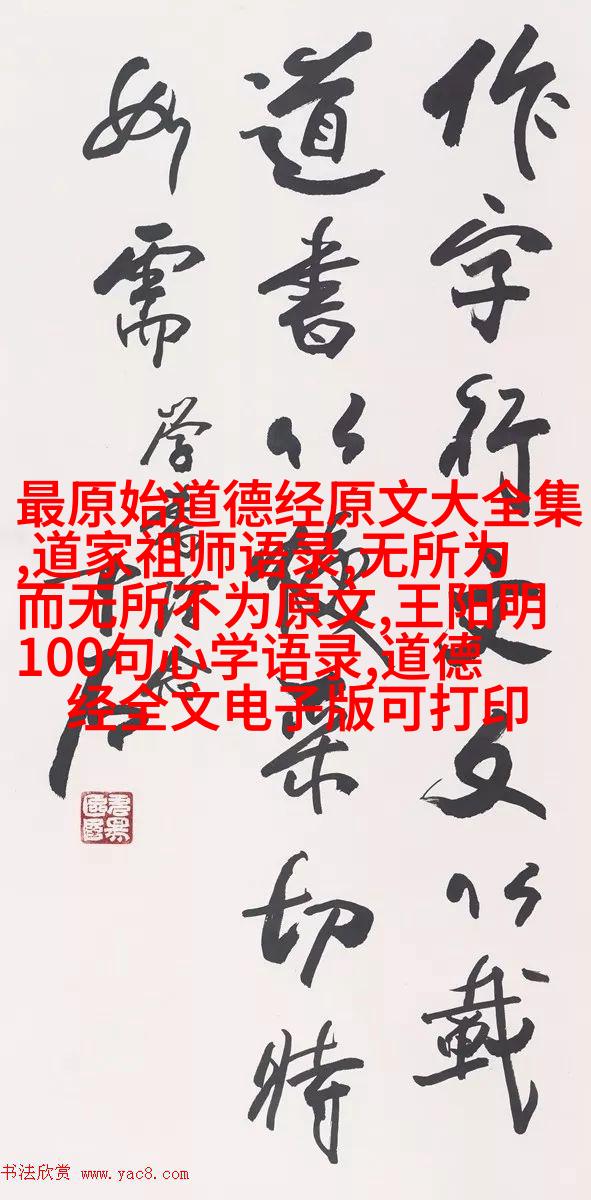 作字行文以載
道書以采切時
如需
最原始道德经原文大全集
,道家祖师语录,无所为
而无所不为原文,王阳明
100句心学语录,道德
经全文电子版可打印
书法欣赏 www.yac8.com